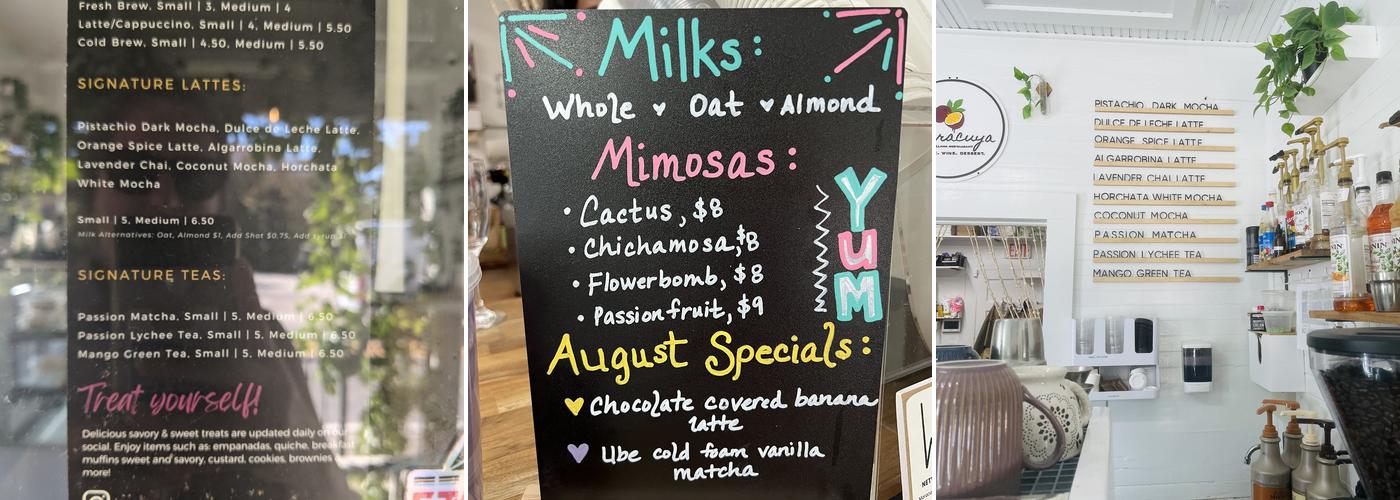 Fresh Brew, Small | 3, Medium | 4
Latte/Cappuccino, Small | 4, Medium | 5.50
Cold Brew, Small | 4.50, Medium | 5.50
SIGNATURE LATTES:
Pistachio Dark Mocha, Dulce de Leche Latte,
Orange Spice Latte, Algarrobina Latte,
Lavender Chai, Coconut Mocha, Horchata
White Mocha
Small | 5, Medium | 6.50
Milk Alternatives: Oat, Almond $1, Add Shot $0.75, Add syrup
SIGNATURE TEAS:
Passion Matcha, Small | 5, Medium | 6.50
Passion Lychee Tea, Small | 5, Medium | 6.50
Mango Green Tea, Small | 5, Medium | 6.50
Treat yourself!
Delicious savory & sweet treats are updated daily on our
social. Enjoy items such as: empanadas, quiche, breakfast
muffins sweet and savory, custard, cookies, brownies
more!
Milks:
Whole Oat Almond
Mimosas:
• Cactus, $8
• Chichamosa, $8
• Flowerbomb, $8
• Passionfruit, $9
YUM
August Specials:
Chocolate covered banana
latte
Ube cold foam vanilla
matcha
racuya
WINE. DESSERT.
PISTACHIO DARK MOCHA
DULCE DE LECHE LATTE
ORANGE SPICE LATTE
ALGARROBINA LATTE
LAVENDER CHAI LATTE
HORCHATA WHITE MOCHA
COCONUT MOCHA
PASSION MATCHA
PASSION LYCHEE TEA
MANGO GREEN TEA